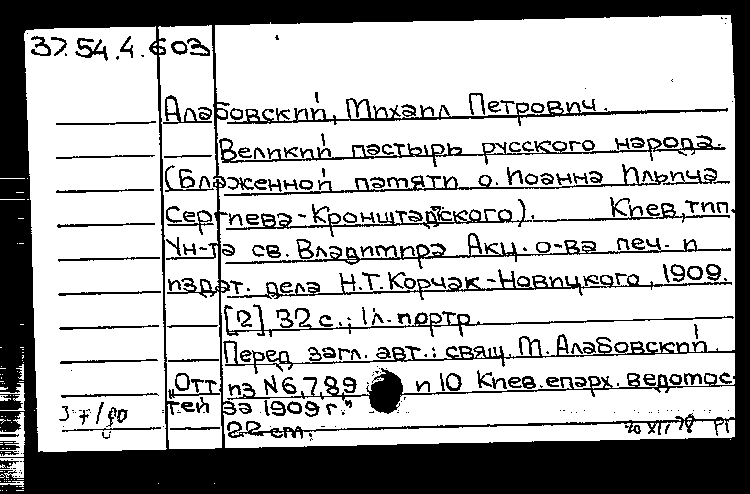 37.54.4.603
Алабовский, Михаил Петрович.
Великий пастырь русского народа.
(Блаженной памяти о. Иоанна Ильича
Сергиева-Кронштадтского). Киев, тип.
Ун-та св. Владимира Акц. о-ва печ. и
издат. дела Н.Т. Корчак-Новицкого, 1909.
[2], 32 с.; 1 л. портр.
Перед загл. авт.: свящ. М. Алабовский.
„Отт из N 6,7,8,9 и 10 Киев. епарх. ведомос-
тей за 1909 г."
22 cm.